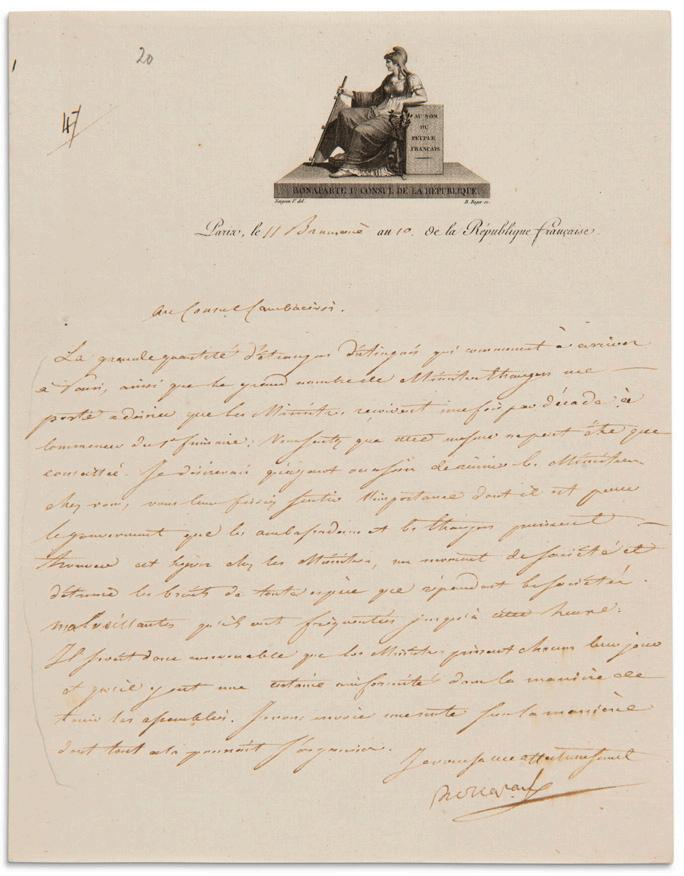 20
47
AU NOM
DU
PEUPLE
FRANÇAIS
BONAPARTE 1er CONSUL DE LA REPUBLIQUE
B. Roger sc.
Paris, le 11 Brumaire an 10. de la République française.
au Consul Cambacérès.
La grande quantité d'étrangers distingués qui commencent à arriver
à Paris, ainsi que le grand nombre de Ministres étrangers me
porte à désirer que les Ministres reçoivent une fois par décade à
commencer du 1er frimaire; Vous sentez que cette mesure ne peut être que
conseillée. Je désirerais qu'ayant occasion de réunir les Ministres
chez vous, vous leur fissiez sentir l'importance dont il est pour
le gouvernement que les ambassadeurs et les étrangers puissent
trouver cet hyver chez les Ministres, un moment de société et
détruire les bruits de toute espèce que répandent les sociétés
malveillantes qu'ils ont fréquentées jusqu'à cette heure.
Il serait donc convenable que les Ministres prissent chacun leur jour
et qu'il y eut une certaine uniformité dans la manière de
tenir les assemblées. Je vous envoie une note sur la manière
dont tout cela pourrait s'organiser.
Je vous salue affectueusement
Bonaparte